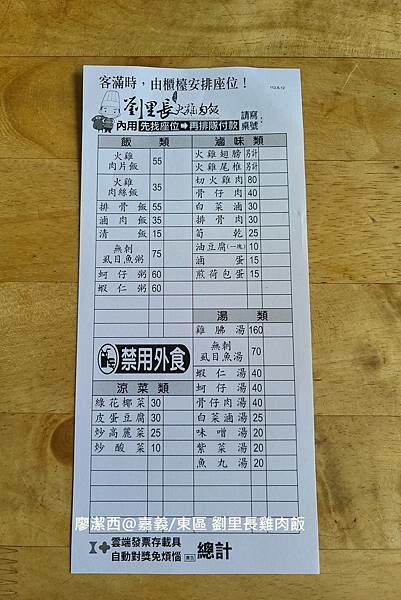 客滿時，由櫃檯安排座位！
112.8.12
劉里長火雞肉飯
請寫桌號：
內用 先找座位➡再排隊付款
飯類
火雞肉片飯 55
火雞肉絲飯 35
排骨飯 55
滷肉飯 35
清飯 15
無刺虱目魚粥 75
蚵仔粥 60
蝦仁粥 60
禁用外食
涼菜類
綠花椰菜 30
皮蛋豆腐 30
炒高麗菜 25
炒酸菜 10
滷味類
火雞翅膀 另計
火雞尾椎 另計
切火雞肉 80
骨仔肉 40
白菜滷 30
排骨肉 30
筍乾 25
油豆腐(一塊) 10
滷蛋 15
煎荷包蛋 15
湯類
雞腨湯 160
無刺虱目魚湯 70
蝦仁湯 40
蚵仔湯 40
骨仔肉湯 40
白菜滷湯 25
味噌湯 20
紫菜湯 20
魚丸湯 20
廖潔西@嘉義/東區 劉里長雞肉飯
雲端發票存載具
自動對獎免煩惱
總計